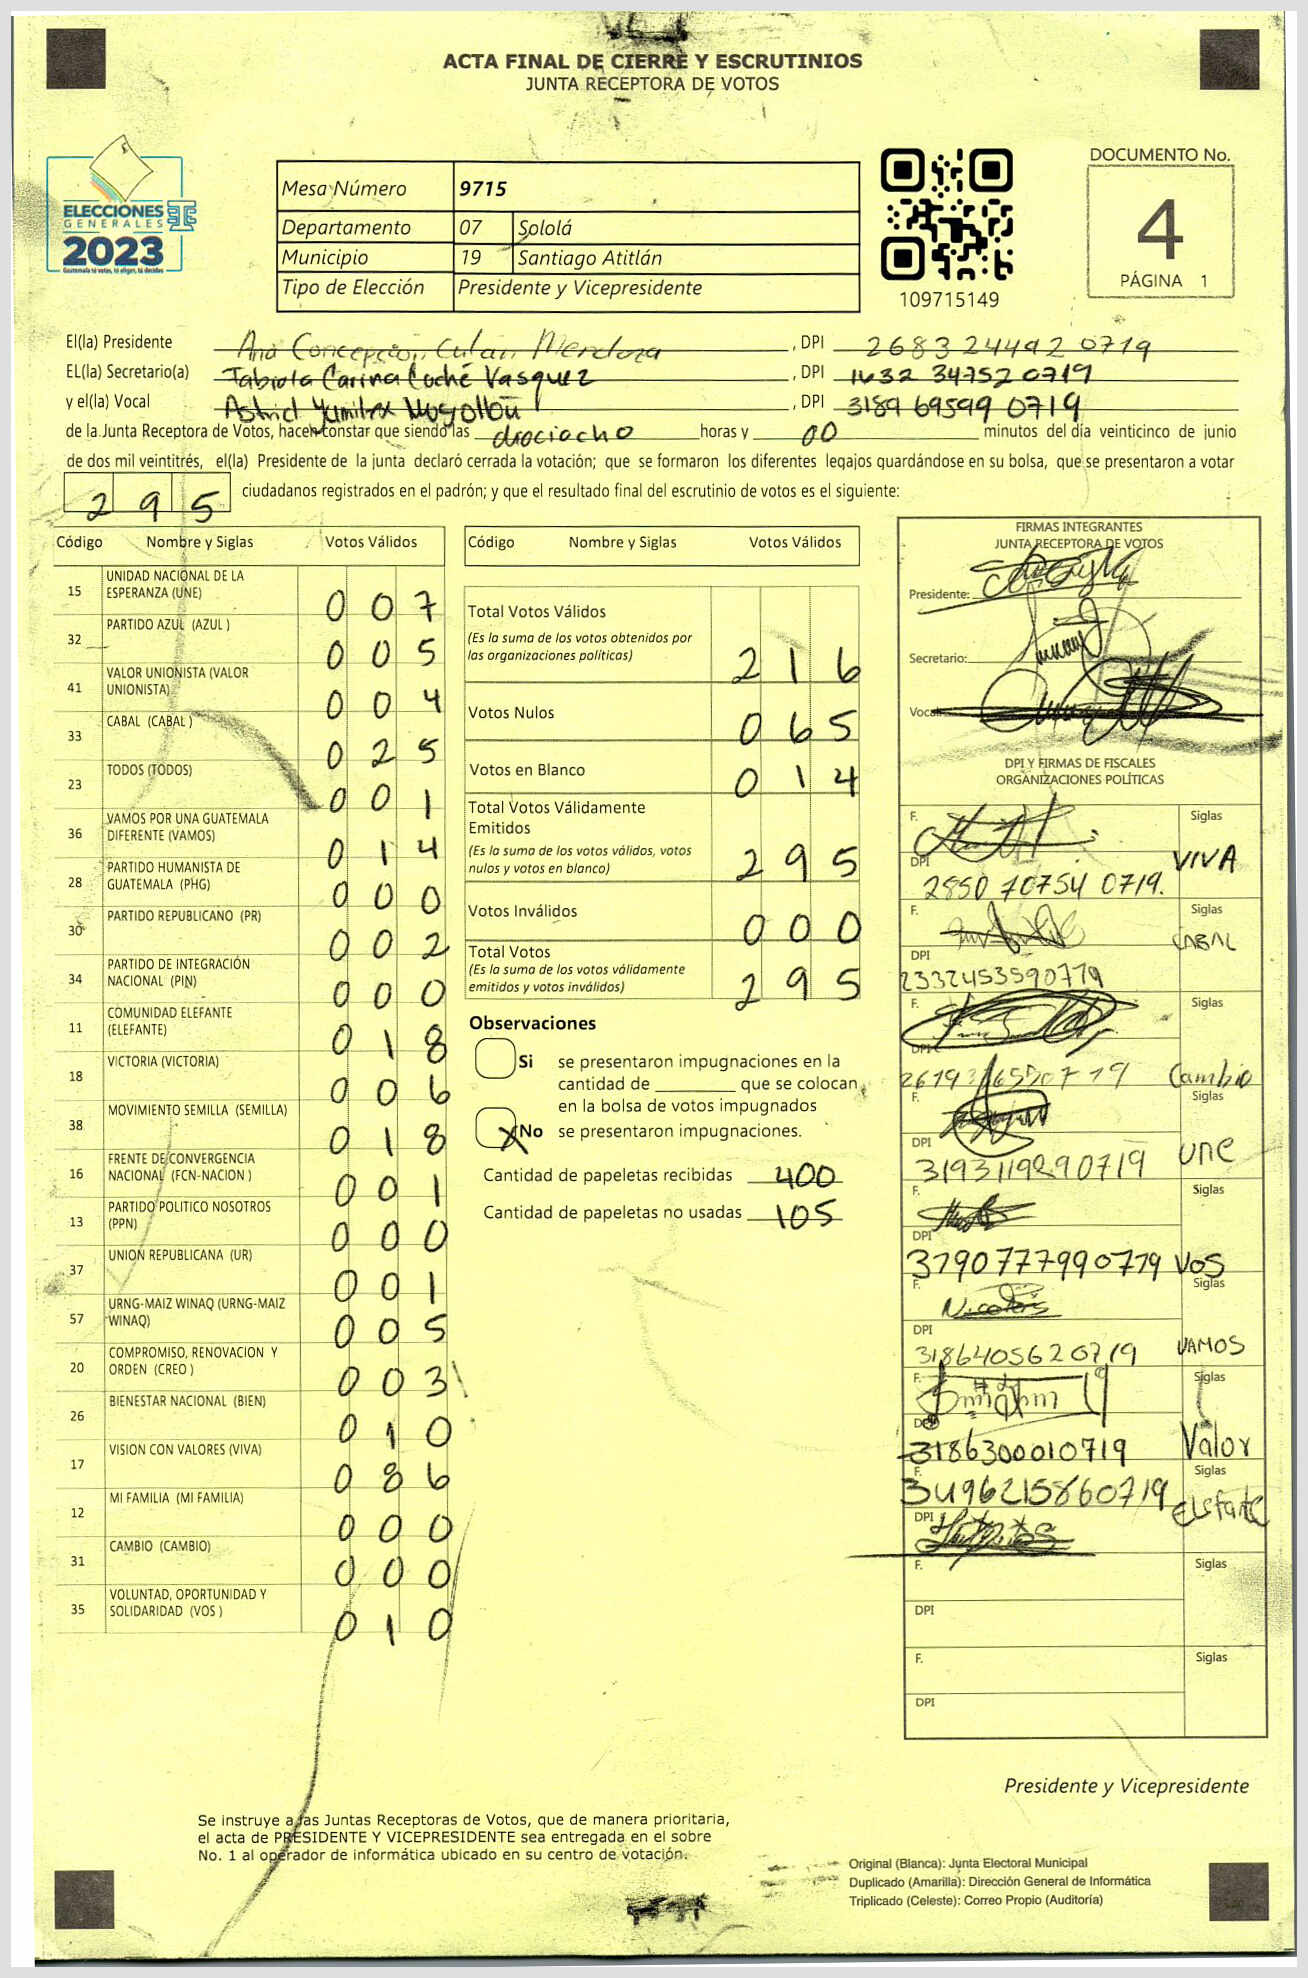 ACTA FINAL DE CIERRE Y ESCRUTINIOS
JUNTA RECEPTORA DE VOTOS
ELECCIONES
GENERALES
2023
Guatemala tú votas, tú eliges, tú decides
Mesa Número 9715
Departamento 07 Sololá
Municipio 19 Santiago Atitlán
Tipo de Elección Presidente y Vicepresidente
109715149
DOCUMENTO No.
4
PÁGINA 1
El(la) Presidente Ana Concepción Culan Mendoza , DPI 2683 24492 0719
EL(la) Secretario(a) Fabiola Carina Coché Vasquez , DPI 1632 34752 0719
y el(la) Vocal Astrid Yamilex Mogollón , DPI 3189 69599 0719
de la Junta Receptora de Votos, hacen constar que siendo las dieciocho horas y 00 minutos del día veinticinco de junio
de dos mil veintitrés, el(la) Presidente de la junta declaró cerrada la votación; que se formaron los diferentes legajos guardándose en su bolsa, que se presentaron a votar
295 ciudadanos registrados en el padrón; y que el resultado final del escrutinio de votos es el siguiente:
Código Nombre y Siglas Votos Válidos
15 UNIDAD NACIONAL DE LA ESPERANZA (UNE) 007
32 PARTIDO AZUL (AZUL ) 005
41 VALOR UNIONISTA (VALOR UNIONISTA) 004
33 CABAL (CABAL ) 025
23 TODOS (TODOS) 001
36 VAMOS POR UNA GUATEMALA DIFERENTE (VAMOS) 014
28 PARTIDO HUMANISTA DE GUATEMALA (PHG) 000
30 PARTIDO REPUBLICANO (PR) 002
34 PARTIDO DE INTEGRACIÓN NACIONAL (PIN) 000
11 COMUNIDAD ELEFANTE (ELEFANTE) 018
18 VICTORIA (VICTORIA) 006
38 MOVIMIENTO SEMILLA (SEMILLA) 018
16 FRENTE DE CONVERGENCIA NACIONAL (FCN-NACION ) 001
13 PARTIDO POLITICO NOSOTROS (PPN) 000
37 UNION REPUBLICANA (UR) 001
57 URNG-MAIZ WINAQ (URNG-MAIZ WINAQ) 005
20 COMPROMISO, RENOVACION Y ORDEN (CREO ) 003
26 BIENESTAR NACIONAL (BIEN) 010
17 VISION CON VALORES (VIVA) 086
12 MI FAMILIA (MI FAMILIA) 000
31 CAMBIO (CAMBIO) 000
35 VOLUNTAD, OPORTUNIDAD Y SOLIDARIDAD (VOS ) 010
Código Nombre y Siglas Votos Válidos
Total Votos Válidos 216
(Es la suma de los votos obtenidos por
las organizaciones políticas)
Votos Nulos 065
Votos en Blanco 014
Total Votos Válidamente
Emitidos 295
(Es la suma de los votos válidos, votos
nulos y votos en blanco)
Votos Inválidos 000
Total Votos 295
(Es la suma de los votos válidamente
emitidos y votos inválidos)
Observaciones
Si se presentaron impugnaciones en la
cantidad de ________ que se colocan
en la bolsa de votos impugnados
X No se presentaron impugnaciones.
Cantidad de papeletas recibidas 400
Cantidad de papeletas no usadas 105
FIRMAS INTEGRANTES
JUNTA RECEPTORA DE VOTOS
Presidente:
Secretario:
Vocal:
DPI Y FIRMAS DE FISCALES
ORGANIZACIONES POLÍTICAS
F. Siglas
DPI VIVA
2850 70754 0719.
F. Siglas
DPI CABAL
2332453590719
F. Siglas
DPI Cambio
F. Siglas
DPI UNE
3193119290719
F. Siglas
DPI
3190777990719 VOS
F. Siglas
DPI
3186405620719 VAMOS
F. Siglas
DPI
3186300010719 Valor
F. Siglas
3496215860719 Elefante
DPI
F. Siglas
DPI
F. Siglas
DPI
Presidente y Vicepresidente
Se instruye a las Juntas Receptoras de Votos, que de manera prioritaria,
el acta de PRESIDENTE Y VICEPRESIDENTE sea entregada en el sobre
No. 1 al operador de informática ubicado en su centro de votación.
Original (Blanca): Junta Electoral Municipal
Duplicado (Amarilla): Dirección General de Informática
Triplicado (Celeste): Correo Propio (Auditoría)